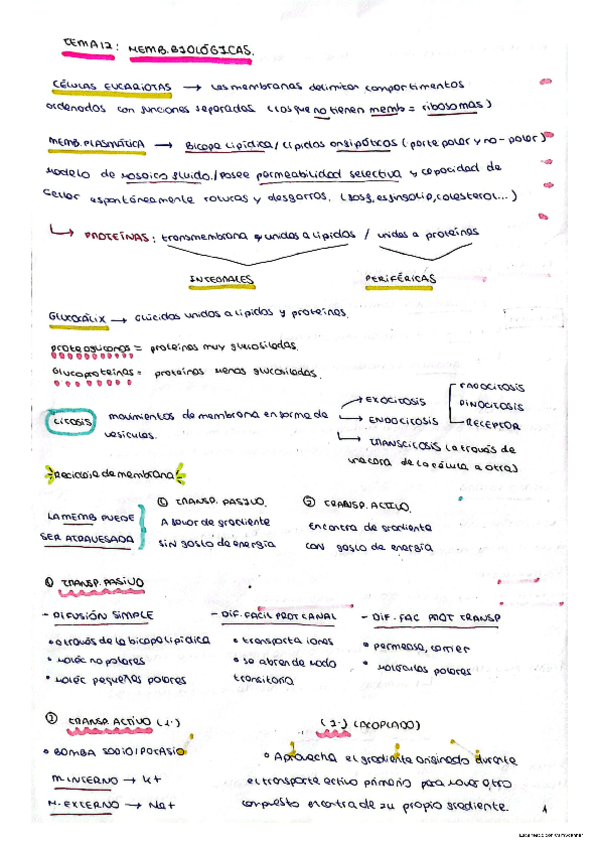 TEMA 12: MEMB. BIOLÓGICAS.
CÉLULAS EUCARIOTAS → Las membranas delimitan compartimentos
ordenados con funciones separadas (los que no tienen memb = ribosomas)
MEMB. PLASMÁTICA → Bicapa lipídica / Lípidos anfipáticos (parte polar y no-polar)
Modelo de mosaico fluido. / Posee permeabilidad selectiva y capacidad de
sellar espontáneamente roturas y desgarros. (fosfg, esfingolip, colesterol...)
↳ PROTEÍNAS: transmembrana y unidas a lípidos / unidas a proteínas
INTEGRALES PERIFÉRICAS
GLUCOCÁLIX → Glúcidos unidos a lípidos y proteínas.
proteoglicanos = proteínas muy glucosiladas.
Glucoproteínas = proteínas menos glucosiladas.
CITOSIS movimientos de membrana en forma de
vesículas.
→ EXOCITOSIS
→ ENDOCITOSIS
FAGOCITOSIS
PINOCITOSIS
RECEPTOR
↳ TRANSCITOSIS (a través de
una cara de la célula a otra)
Reciclaje de membrana
LA MEMB PUEDE
SER ATRAVESADA
① TRANSP. PASIVO.
A favor de gradiente
sin gasto de energía
② TRANSP. ACTIVO.
En contra de gradiente
con gasto de energía
① TRANSP. PASIVO
- DIFUSIÓN SIMPLE
• a través de la bicapa lipídica
• moléc no polares
• moléc pequeñas polares
- DIF. FACIL PROT CANAL
• transporta iones
• se abren de modo
transitorio
- DIF. FAC PROT TRANSP
• permeasa, carrier
• moléculas polares
② TRANSP. ACTIVO (1º)
• BOMBA SODIO/POTASIO
M. INTERNO → K+
M. EXTERNO → Na+
(2º) (ACOPLADO)
• Aprovecha el gradiente originado durante
el transporte activo primario para mover otro
compuesto en contra de su propio gradiente.
1